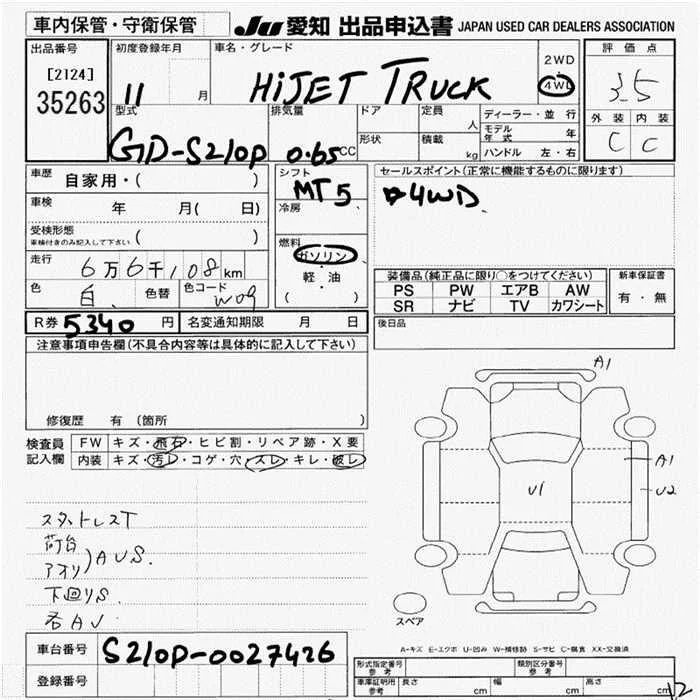 車内保管・守衛保管
JU 愛知 出品申込書 JAPAN USED CAR DEALERS ASSOCIATION
出品番号
[2124]
35263
初度登録年月
11 月
車名・グレード
HiJET TRUCK
2WD
4WD
評価点
3.5
外装 内装
C C
型式
GD-S210P
排気量
0.65 CC
ドア
形状
定員
人
積載
kg
ディーラー・並行
モデル年式 年
ハンドル 左・右
車歴 自家用・( )
車検 年 月( 日)
受検形態
車検付きのみ記入して下さい ( )
走行 6万6千108km
色 白 色替 色コード W09
シフト
MT5
冷房
燃料
ガソリン
軽・油
( )
セールスポイント(正常に機能するものに限ります)
4WD
装備品(純正品に限り○をつけてください)
PS PW エアB AW
SR ナビ TV カワシート
新車保証書
有・無
後日品
R券 5340 円 名変通知期限 月 日
注意事項申告欄(不具合内容等は具体的に記入して下さい)
修復歴 有 (箇所 )
検査員記入欄
FW キズ・飛石・ヒビ割・リペア跡・X要
内装 キズ・汚レ・コゲ・穴・スレ・キレ・破レ
スタットレスT
荷台
アオリ) A U S.
下回りS
各AU
A1
A1
U2
U1
スペア
A-キズ E-エクボ U-凹み W-補修跡 S-サビ C-腐食 XX-交換済
車台番号 S210P-0027426
登録番号
形式指定番号 参考
類別区分番号 参考
車庫証明用 参考 長さ cm 幅 cm 高さ cm